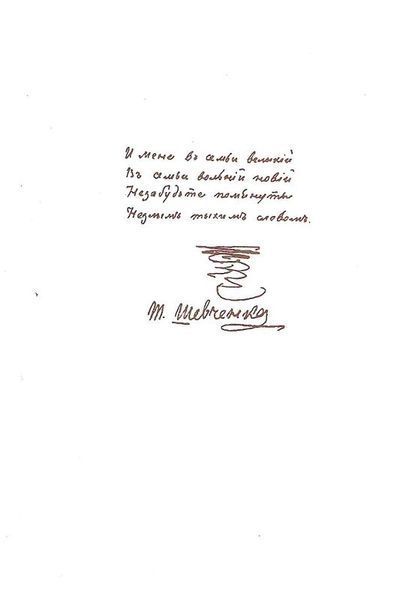 И мене въ семьи великій
Въ семьи вольній новій
Незабудьте помянуты
Незлымъ тыхимъ словомъ.
Т. Шевченко